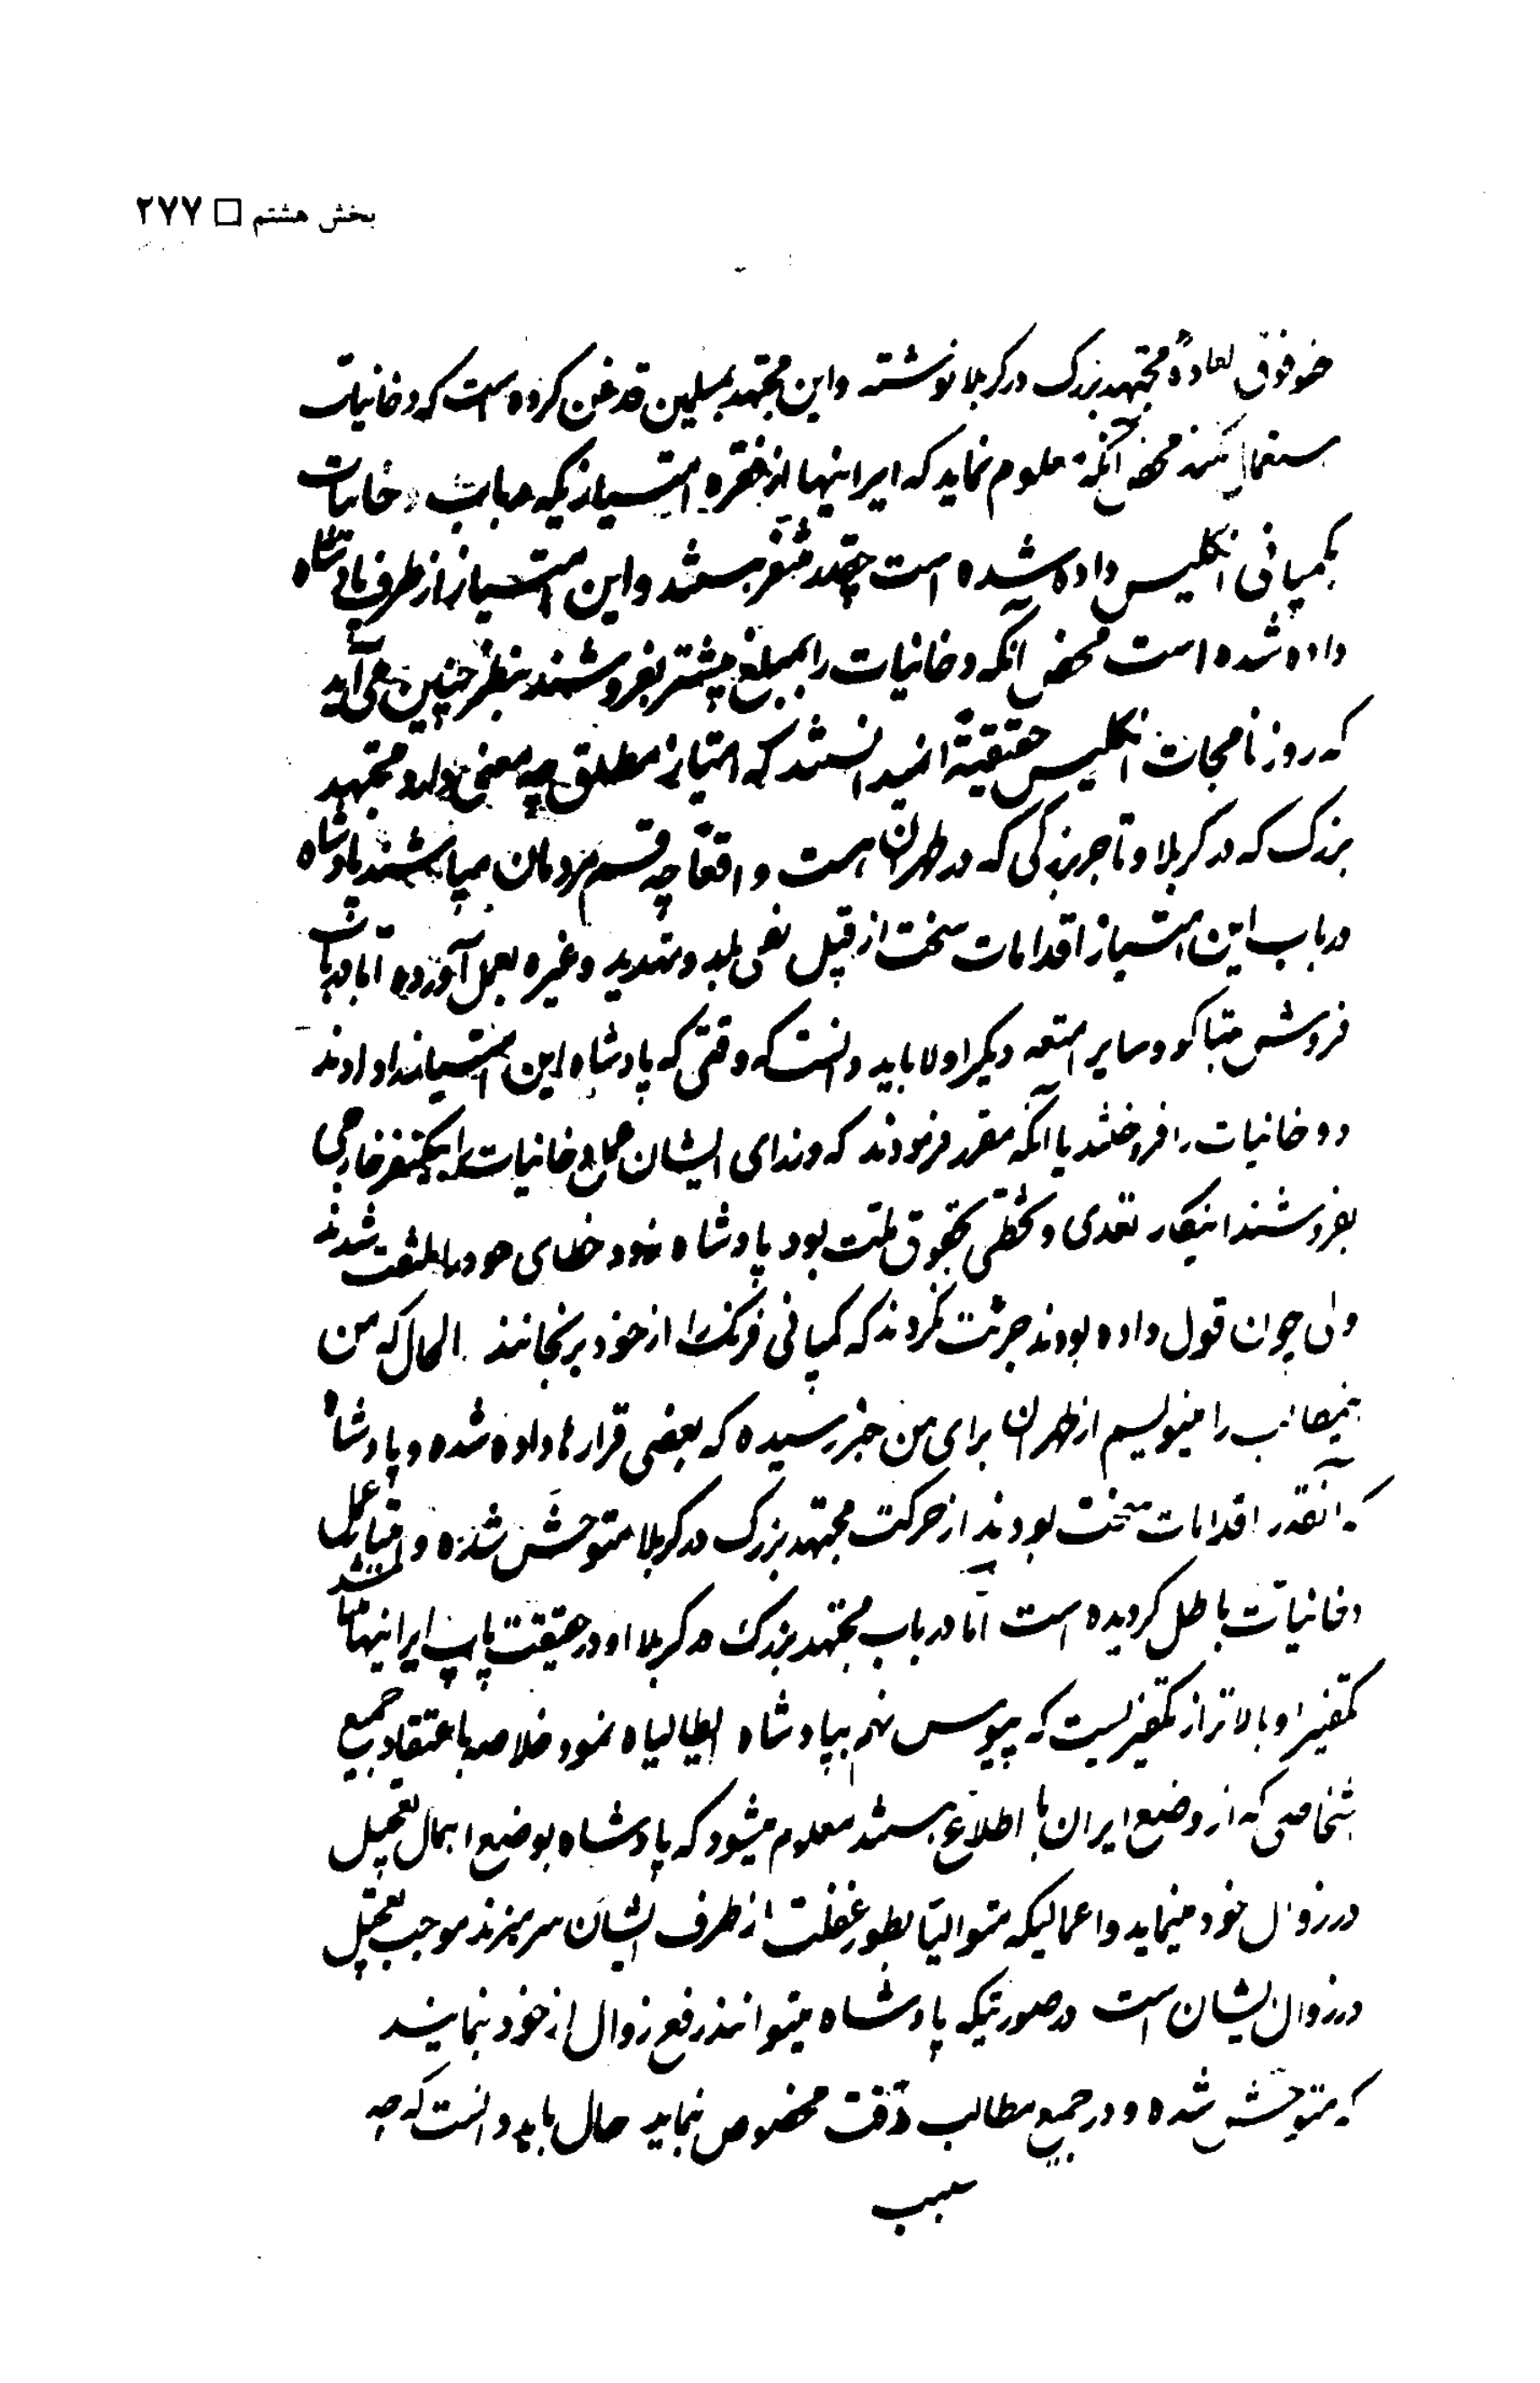 بخش هشتم □ ۲۷۷
فوق العاده مجتهد بزرک در کربلا نوشته و این مجتهد بمسلمین قدغن کرده است که دخانیات
استعمال نکنند محض آنکه معلوم نماید که ایرانیها از فقره امتیازیکه در باب دخانیات
بکمپانی انکلیس داده شده است چقدر متنفر هستند و این امتیاز از طرف پادشاه
داده شده است محض آنکه دخانیات را بمبلغ بیشتر بفروشند بنظر چنین می آید
که روزنامجات انکلیس حقیقةً نمیدانستند که امتیاز مطلق چه معنی دارد و مجتهد
بزرک که در کربلا و تاجر بزرکی که در طهران است واقعاً چه قسم مردمان میباشند پادشاه
در باب این امتیاز اقدامات سخت از قبیل نفی بلد و تهدید و غیره بعمل آورده اما در باب
فروش تنباکو و سایر امتعه دیکر اولا باید دانست که وقتی که پادشاه این امتیاز را دادند
و دخانیات را فروختند با آنکه مقرر فرمودند که وزرای ایشان تمام دخانیات را بیکنفر خارجی
بفروشند اینکار تعدی و تخطی بحقوق ملت بود پادشاه خطای خود را ملتفت شدند
ولی چون قول داده بودند جرئت نکردند که کمپانی فرنک را از خود برنجانند الحال که من
اینمطالب را مینویسم از طهران برای من خبر رسیده که بعضی قرارها داده شده و پادشاه
که آنقدر اقدامات سخت بودند از حرکت مجتهد بزرک در کربلا متوحش شده و امتیاز عمل
دخانیات باطل کردیده است اما در باب مجتهد بزرک در کربلا او در حقیقت پاپ ایرانیها میباشد
تکفیر او بالاتر از تکفیریست که پیوس نهم بپادشاه ایطالیا نمود خلاصه باعتقاد جمیع
اشخاصی که از وضع ایران با اطلاع هستند معلوم میشود که پادشاه بوضع اهمال تعجیل
در زوال خود مینماید و اعمالیکه متوالیاً بطور غفلت از طرف ایشان سر میزند موجب تعجیل
در زوال ایشان است در صورتیکه پادشاه میتوانند رفع زوال از خود بنمایند
که متوحش شده و در جمیع مطالب دقت مخصوص نماید حال باید دانست که چه
سبب